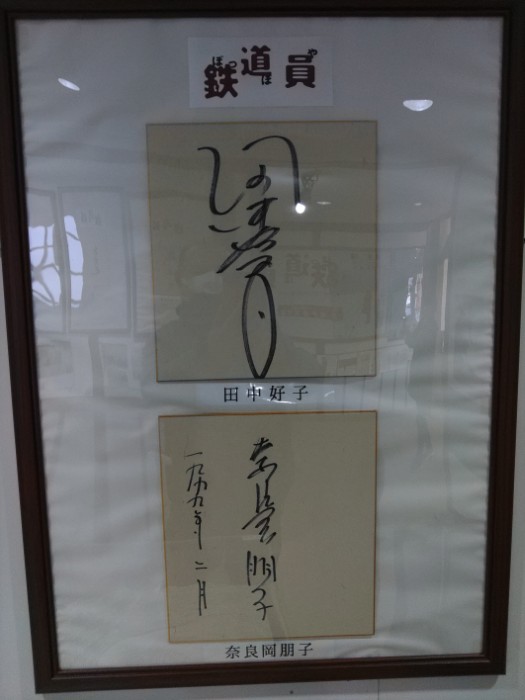 鉄道員
ぽっぽや
田中好子
奈良岡朋子
一九九九年二月
奈良岡朋子